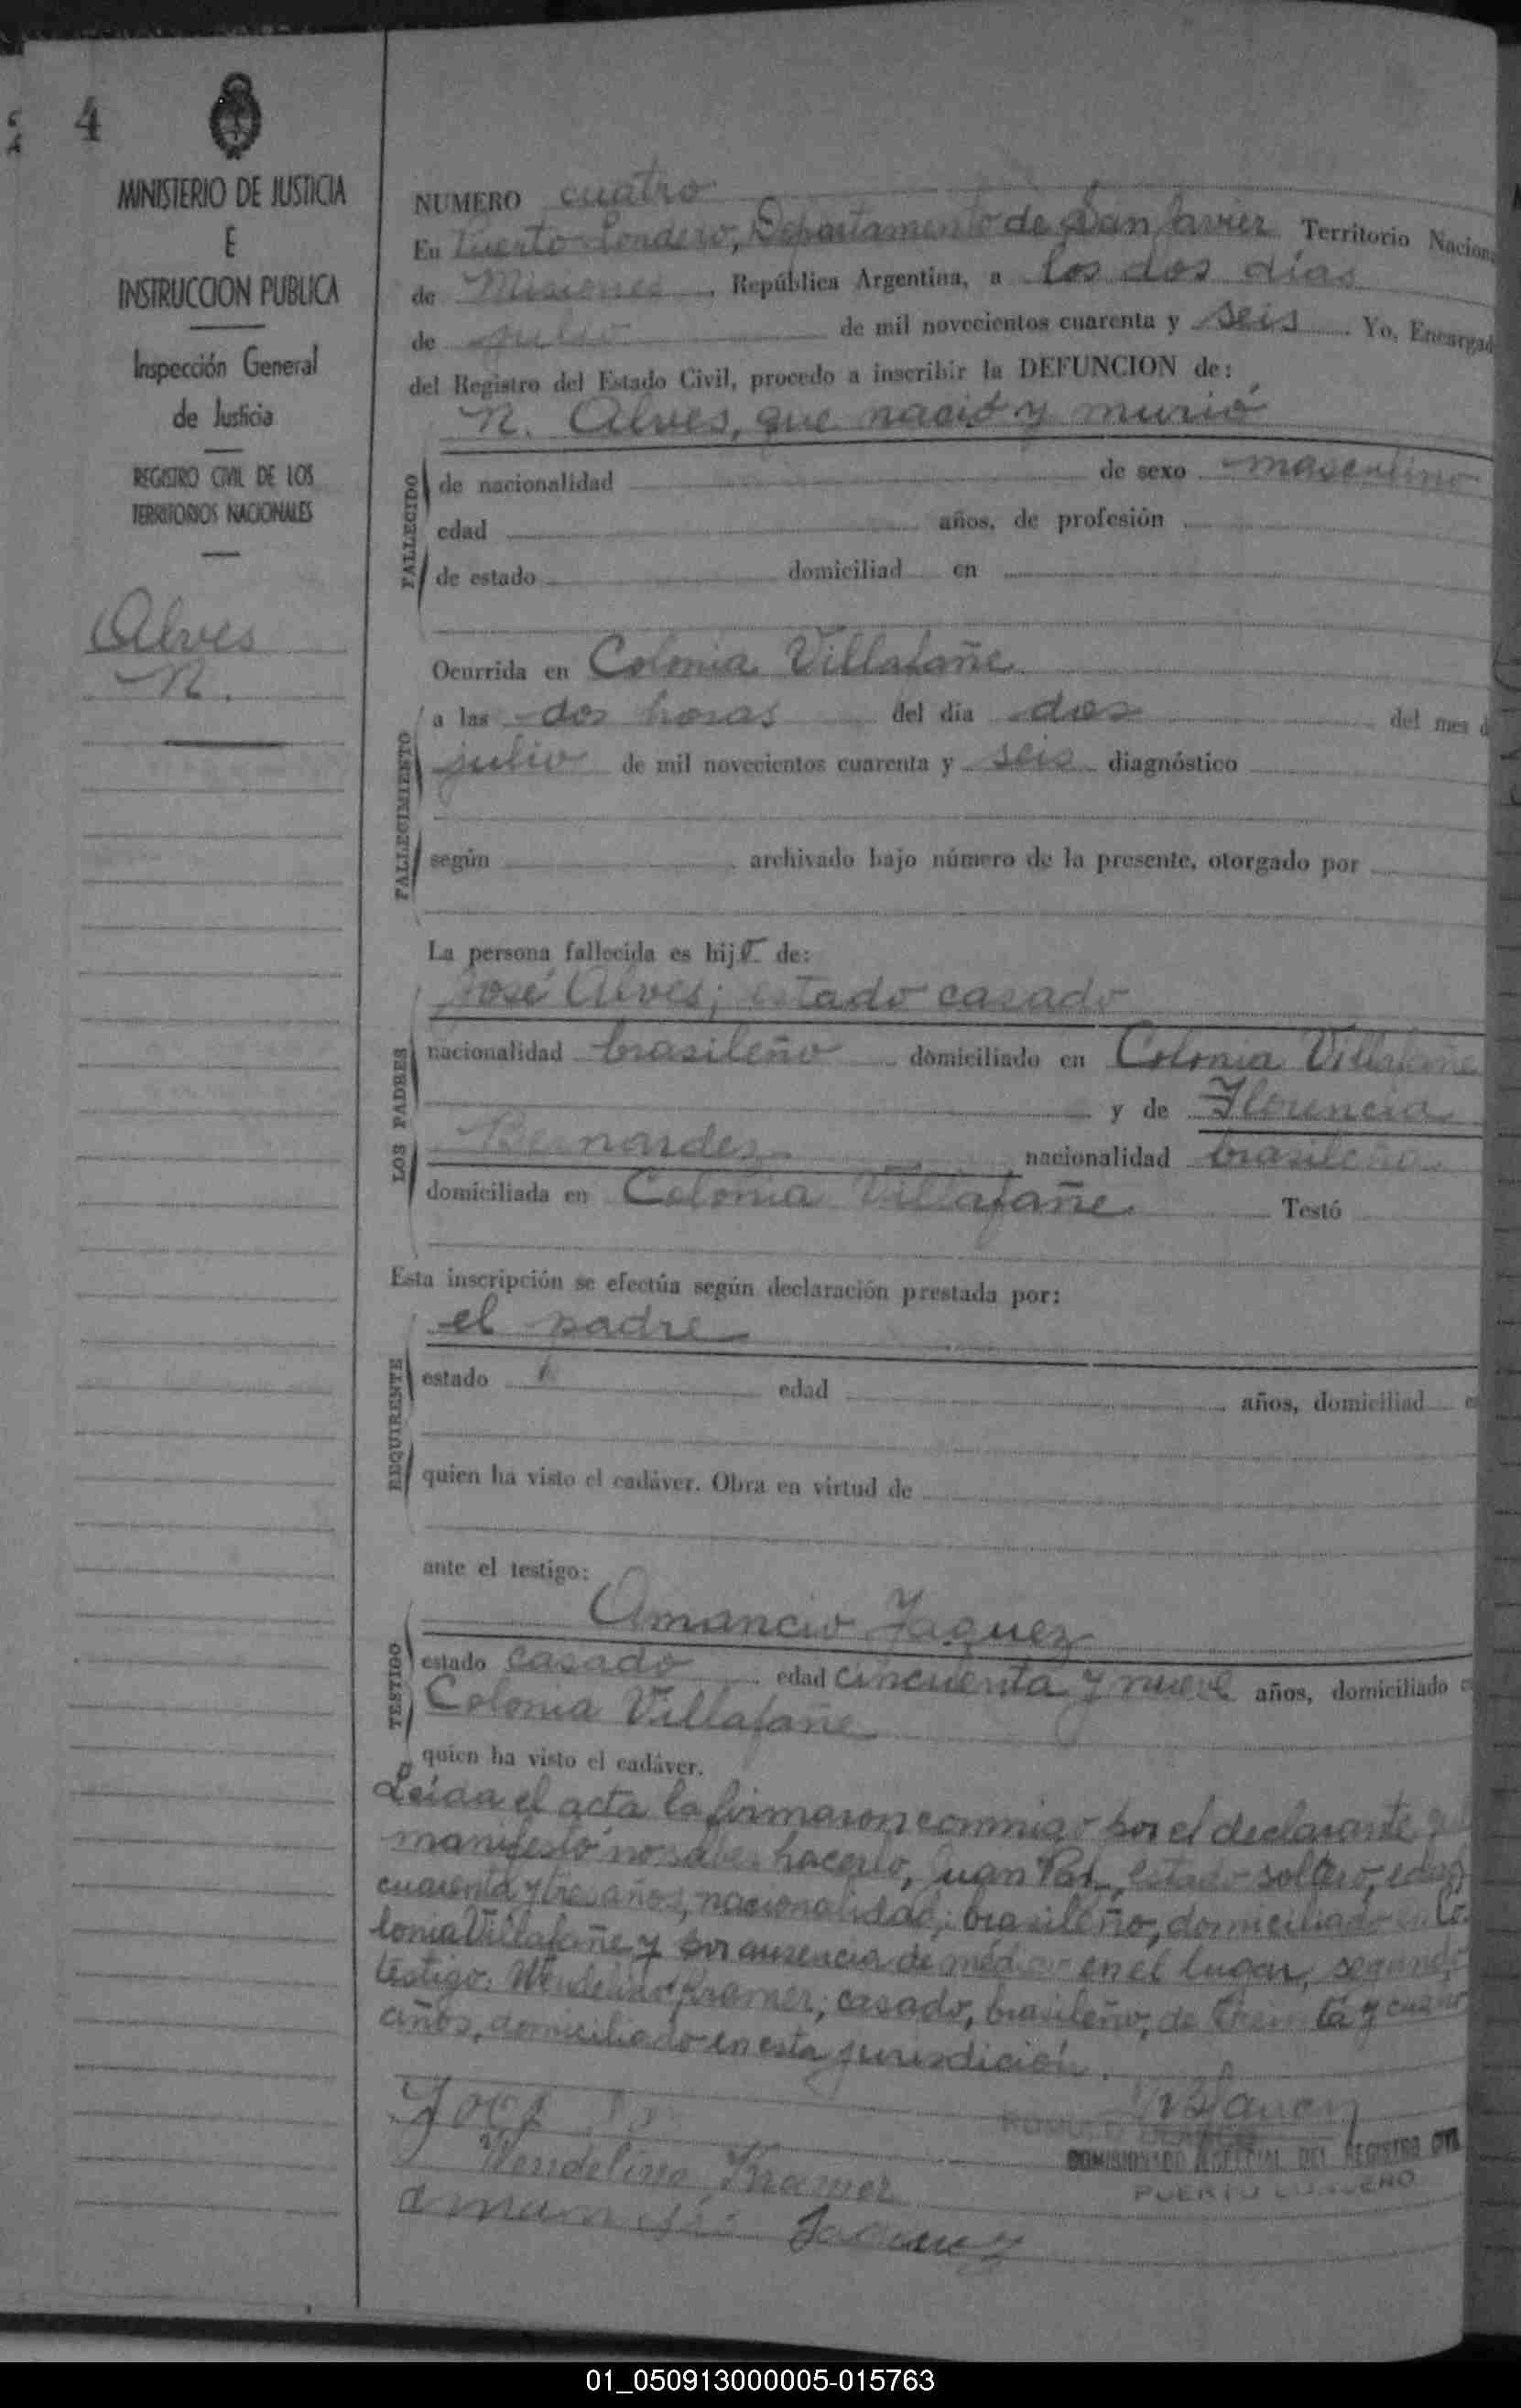 4
MINISTERIO DE JUSTICIA
E
INSTRUCCION PUBLICA
Inspección General
de Justicia
REGISTRO CIVIL DE LOS
TERRITORIOS NACIONALES
Alves
N.
NUMERO cuatro
En Puerto Londero, Departamento de San Javier Territorio Nacion
de Misiones, República Argentina, a los dos días
de julio de mil novecientos cuarenta y seis. Yo, Encargad
del Registro del Estado Civil, procedo a inscribir la DEFUNCION de:
N. Alves, que nació y murió
FALLECIDO
de nacionalidad de sexo masculino
edad años, de profesión
de estado domiciliad en
Ocurrida en Colonia Villafañe
FALLECIMIENTO
a las dos horas del día dos del mes d
julio de mil novecientos cuarenta y seis diagnóstico
según archivado bajo número de la presente, otorgado por
La persona fallecida es hijo de:
LOS PADRES
José Alves; estado casado
nacionalidad brasileño domiciliado en Colonia Villafañe
y de Florencia
Bernardez nacionalidad brasileña
domiciliada en Colonia Villafañe. Testó
Esta inscripción se efectúa según declaración prestada por:
REQUIRENTE
el padre
estado edad años, domiciliad e
quien ha visto el cadáver. Obra en virtud de
ante el testigo:
TESTIGO
Amancio Jaquez
estado casado edad cincuenta y nueve años, domiciliado e
Colonia Villafañe
quien ha visto el cadáver.
Leída el acta la firmaron conmigo por el declarante que
manifestó no saber hacerlo, Juan estado soltero, edad
cuarenta y tres años, nacionalidad; brasileño, domiciliado en Co-
lonia Villafañe y por ausencia de médico en el lugar, segundo
testigo: Wendelino Kramer, casado, brasileño, de treinta y cuatro
años, domiciliado en esta jurisdición.
Wendelino Kramer
Jaquez
COMISIONADO ESPECIAL DEL REGISTRO CIVIL
PUERTO LONDERO
01_050913000005-015763